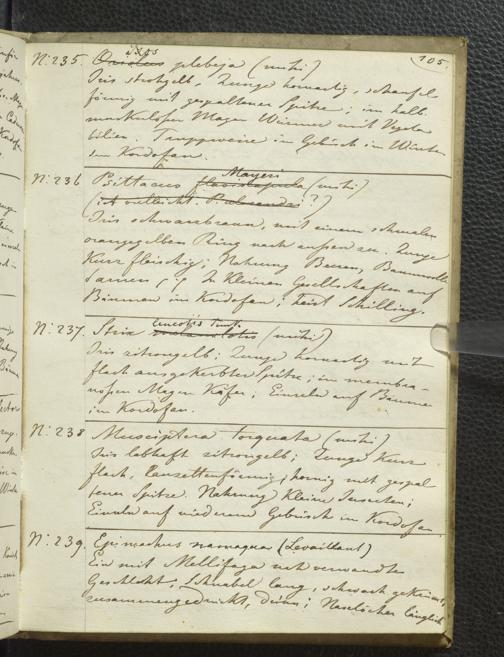 105.
N: 235. plebeja (mihi)
Iris strohgelb, Zunge hornartig, schaufel-
förmig mit gespaltener Spitze; im halb
muskulosen Magen Würmer und Vegeta
bilien. Truppweise im Gebüsch in Wüsten
Kordofan.
N: 236 Psittacus Mayeri (mihi)
(ist vielleicht. ?)
Iris schwarzbraun, mit einem schmalen
orangegelben Ring nach außen zu. Zunge
kurz fleischig; Nahrung Beeren, Baumwoll
Samen, In kleinen Gesellschaften auf
Bäumen in Kordofan; Schilling.
N: 237. Strix leucotis Tem. (mihi)
Iris zitrongelb; Zunge hornartig mit
flach ausgekerbter Spitze; im membra-
nosen Magen Käfer; Einzeln auf Bäumen
in Kordofan.
N: 238 Muscipeta torquata (mihi)
Iris lebhaft zitrongelb; Zunge kurz
flach, lanzettenförmig, hornig mit gespal
tener Spitze. Nahrung kleine Insecten;
Einzeln auf niederem Gebüsch in Kordofan.
N: 239. Epimachus namaqua (Levaillant)
Ein mit Mellifaga verwandtes
Geschlecht, Schnabel lang, schwach gekrümmt,
zusammengedrückt, dünn; Nasenlöcher länglich